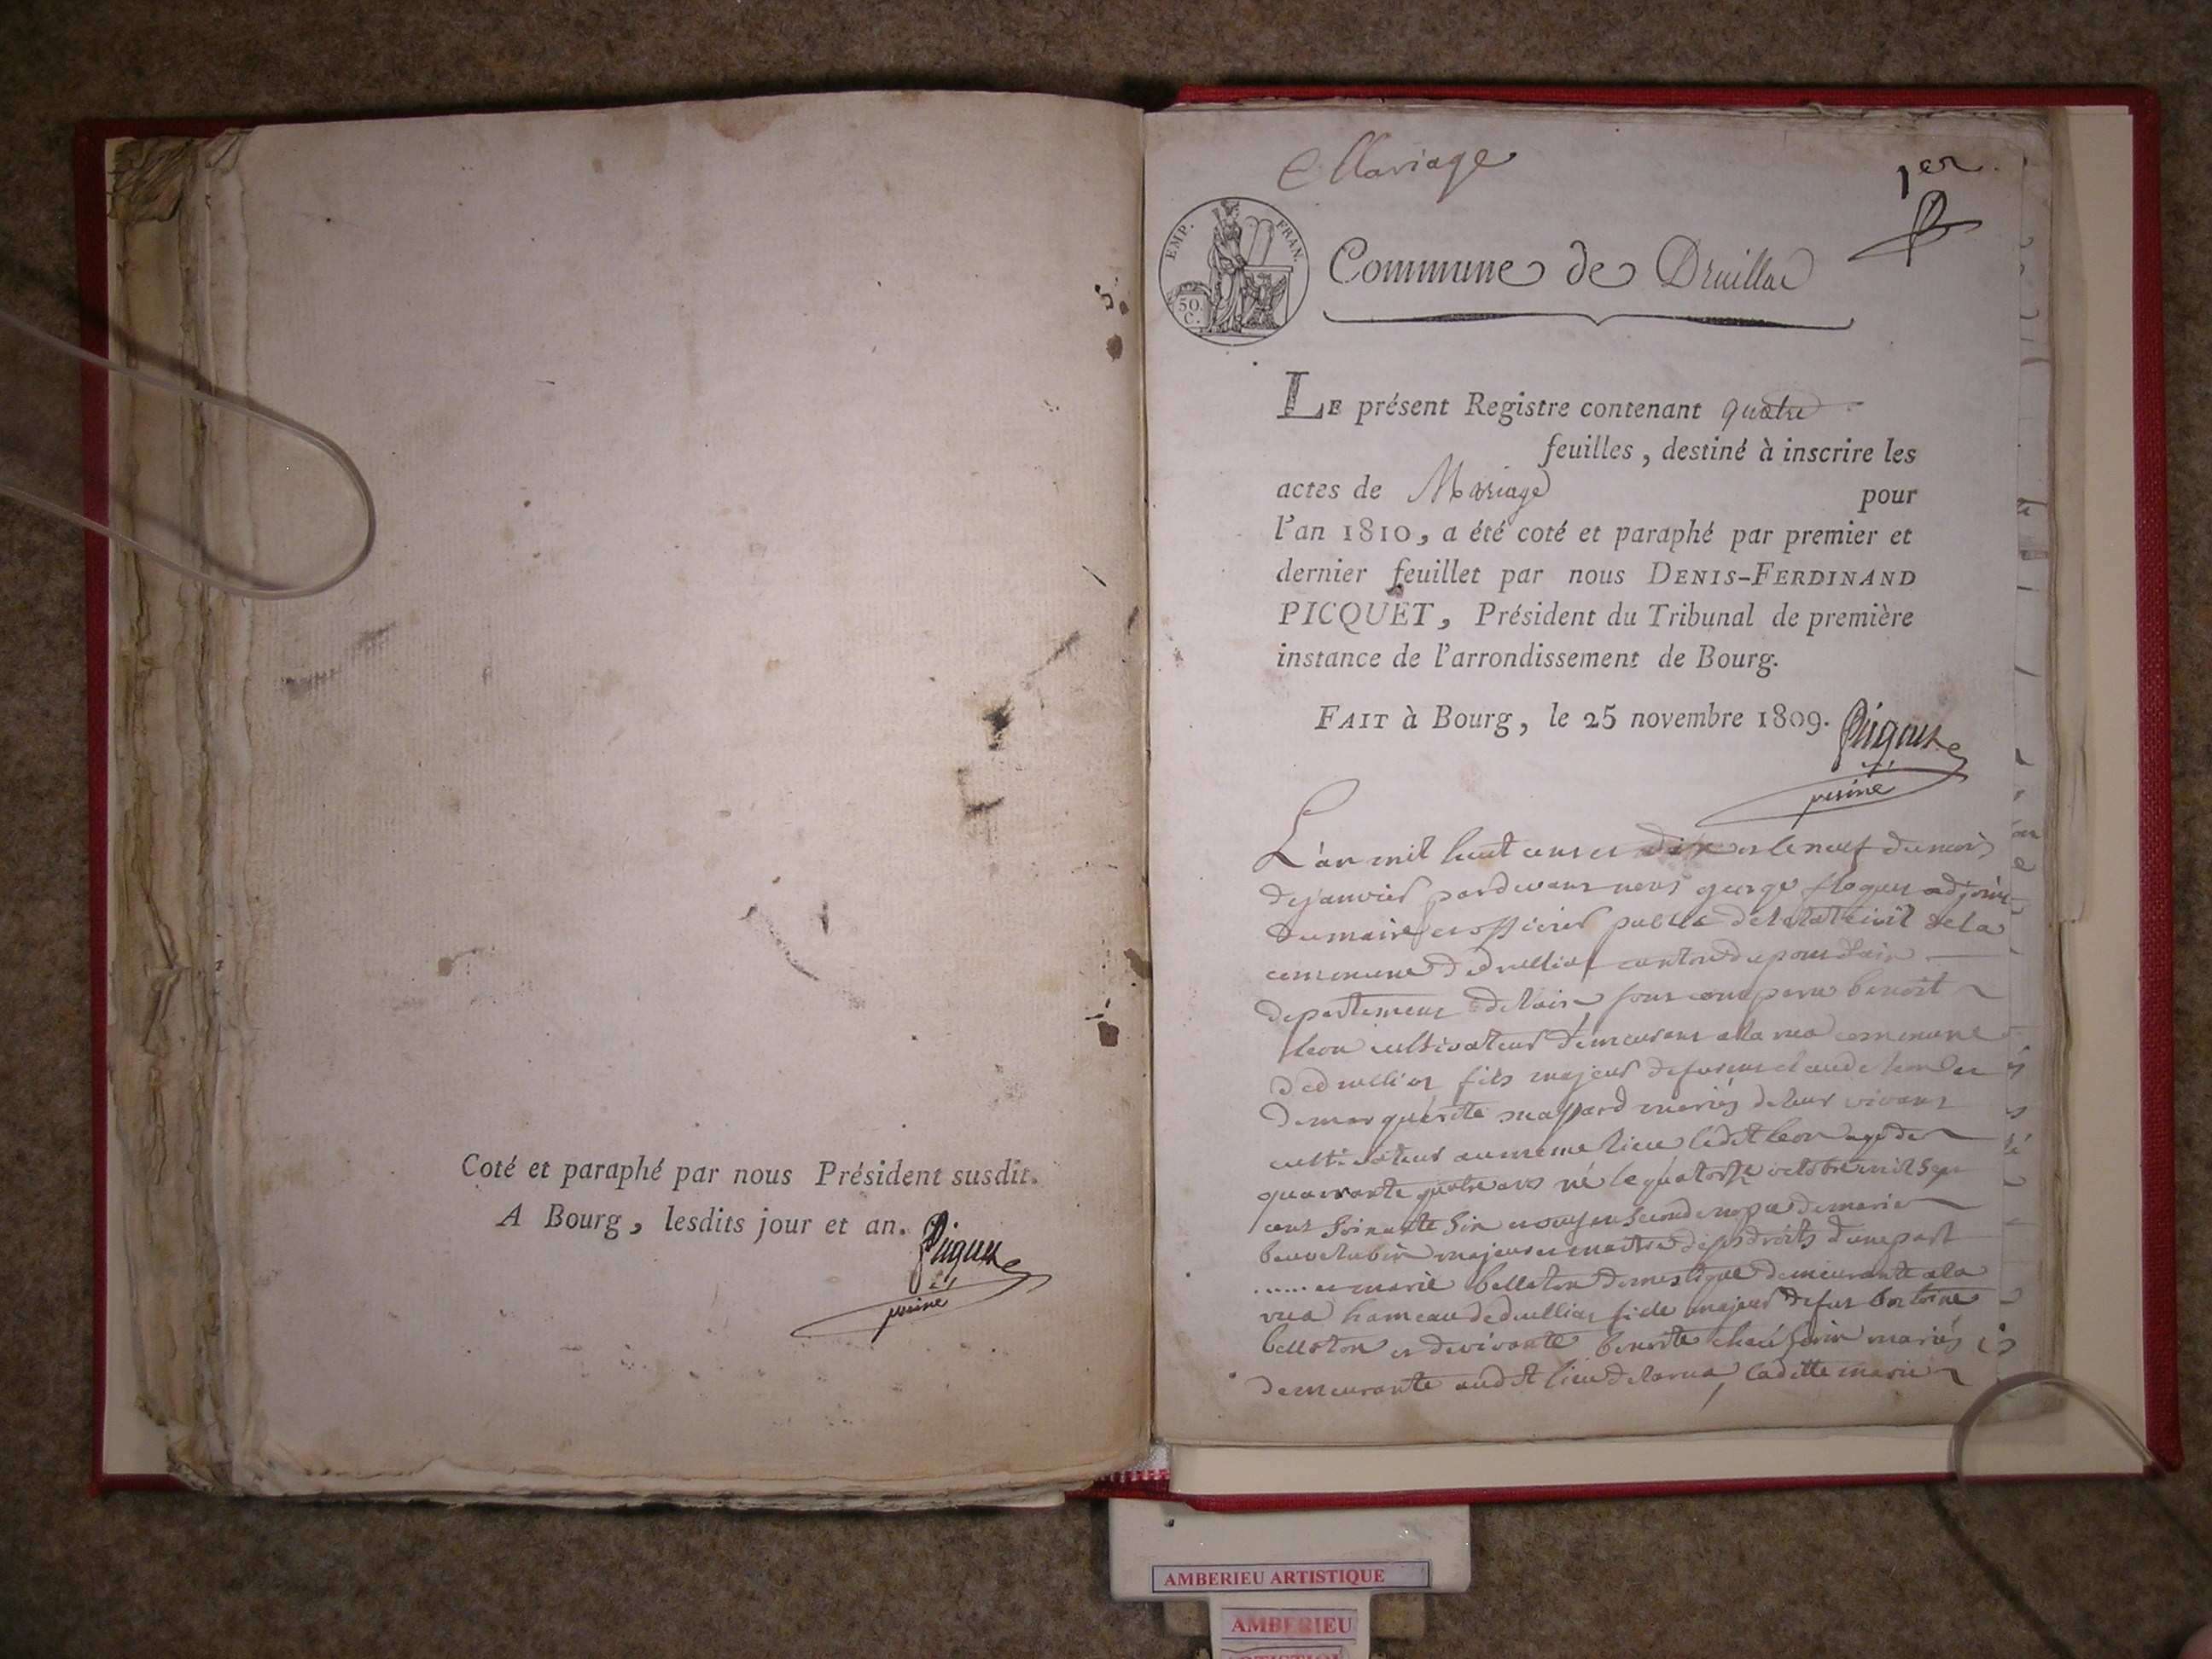 Coté et paraphé par nous Président susdit.
A Bourg, lesdits jour et an.
Mariage
1er.
EMP. FRAN.
50
C.
Commune de Druillat
LE présent Registre contenant quatre
feuilles, destiné à inscrire les
actes de Mariage pour
l'an 1810, a été coté et paraphé par premier et
dernier feuillet par nous DENIS-FERDINAND
PICQUET, Président du Tribunal de première
instance de l'arrondissement de Bourg.
FAIT à Bourg, le 25 novembre 1809.
L'an mil huit cent et dix et le neuf du mois
de janvier pardevant nous george adjoint
du maire et officier public de l'état civil de la
commune de druilliat canton de pont d'ain
departement de l'ain sont comparu benoit
leon cultivateur demeurant a la rua commune
de druilliat fils majeur de
de marguerite mariés de leur vivant
cultivateur au meme lieu ledit leon agé de
quarante quatre ans né le quatorze octobre mil sept
cent soixante six et de marie
majeur et maitre de ses droits d'une part
...... et marie belloton domestique demeurante a la
rua hameau de druilliat fille majeur de
belloton et de vivante benoite mariés
demeurante audit lieu de la rua, ladite marie
AMBERIEU ARTISTIQUE
AMBERIEU